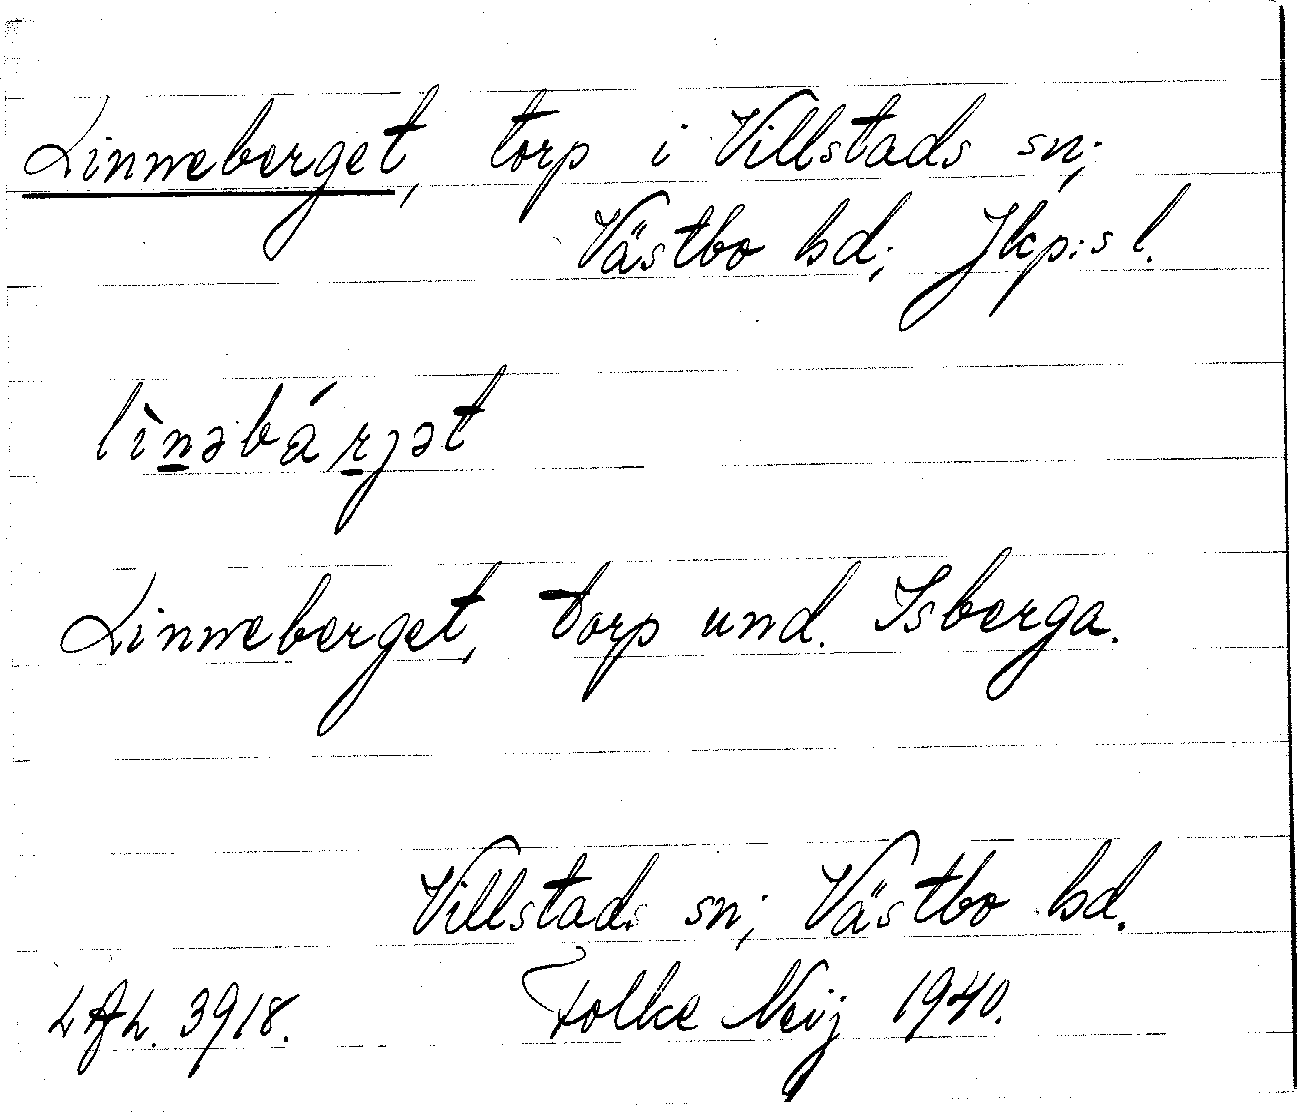 Linneberget, torp i Villstads sn;
Västbo hd; Jkp:s l.
lìnəbárjət
Linneberget, torp und. Isberga.
Villstads sn; Västbo hd.
LAL. 3918. Folke Neij 1940.